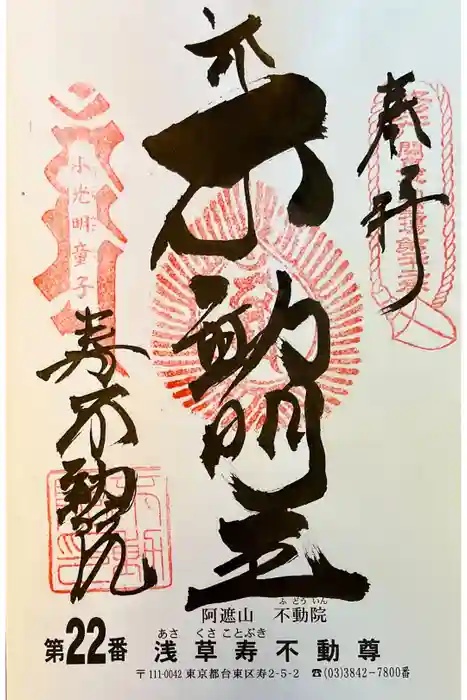 奉拝
不動明王
小光明童子
寿不動院
阿遮山 不動院
ふどういん
第22番 浅草寿不動尊
あさ くさ ことぶき
〒111-0042 東京都台東区寿2-5-2 ☎(03)3842-7800番